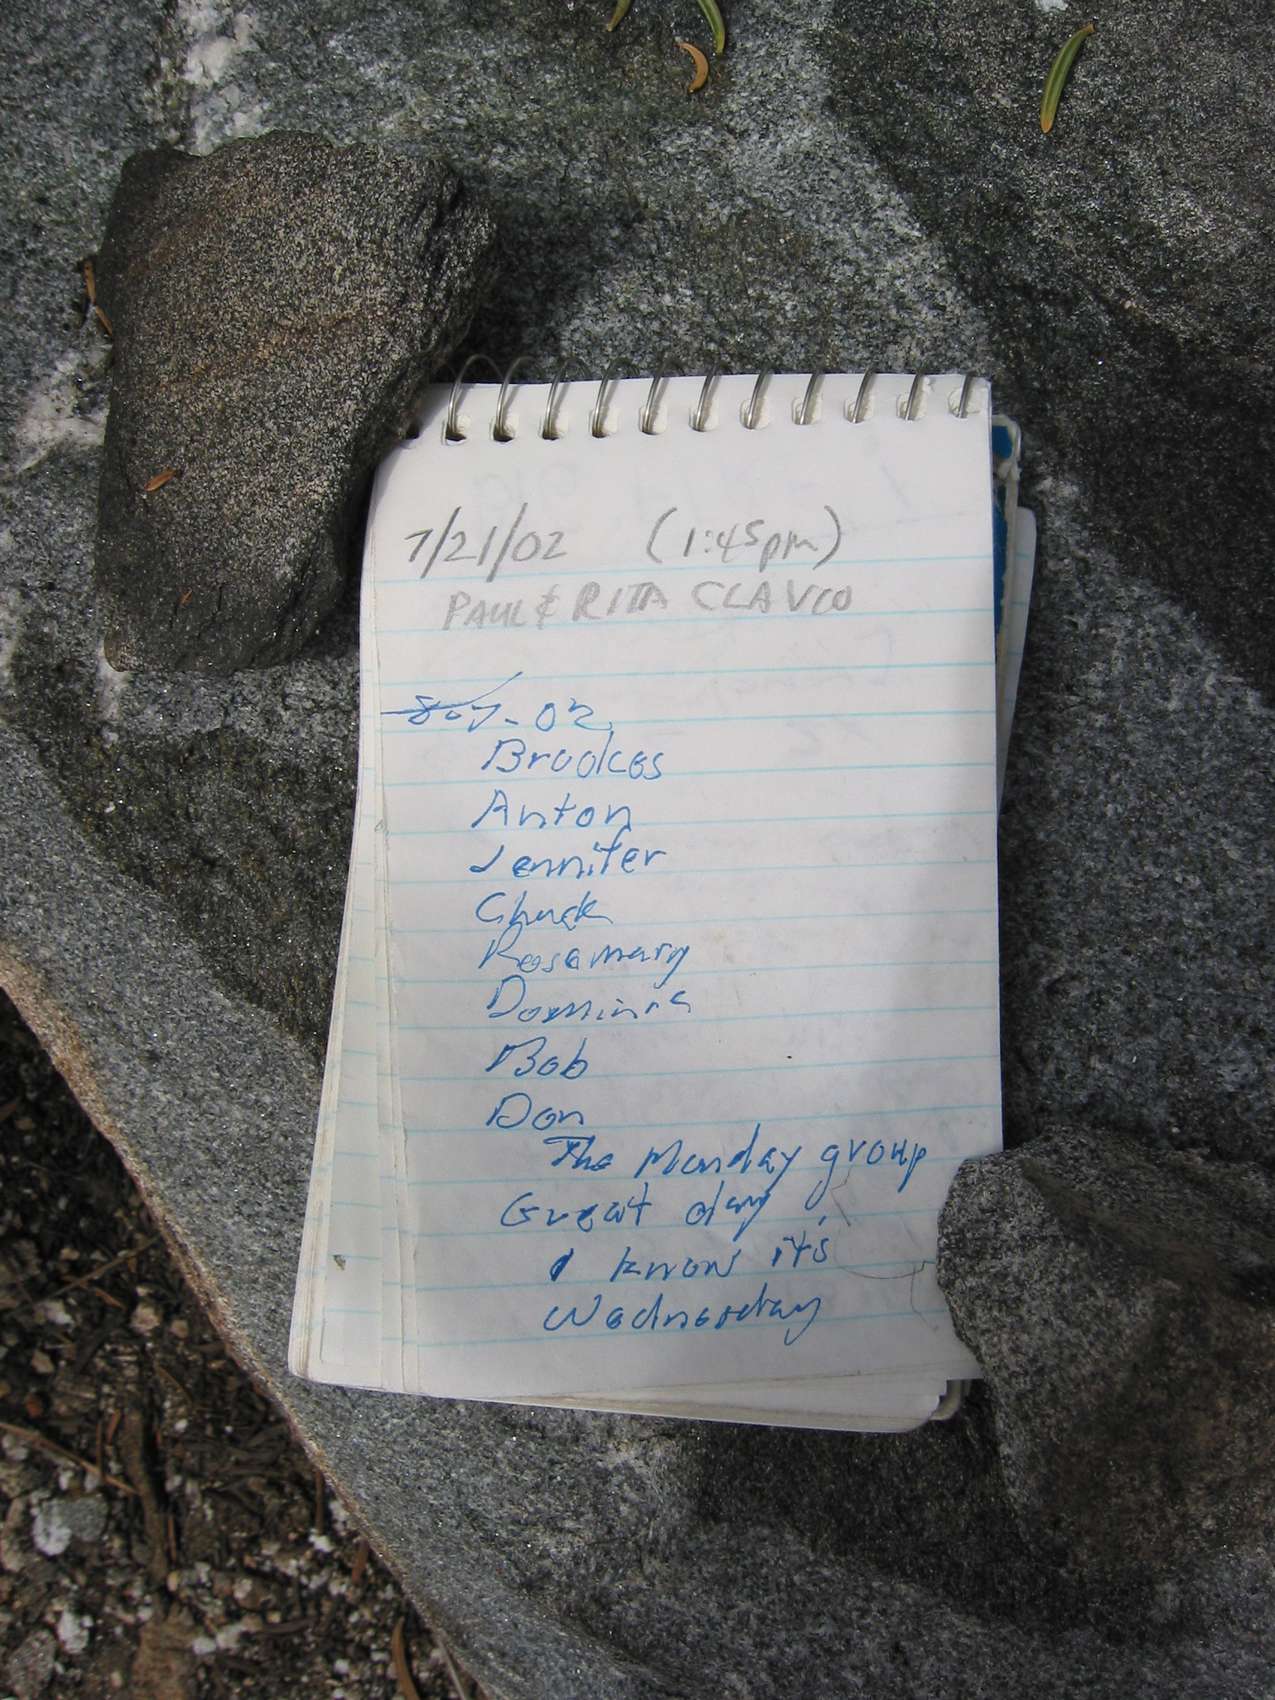 7/21/02 (1:45pm)
PAUL & RITA CLAVCO
8-7-02
Brookes
Anton
Jennifer
Chuck
Rosemary
Dominic
Bob
Don
The Monday group
Great day
I know it's
Wednesday